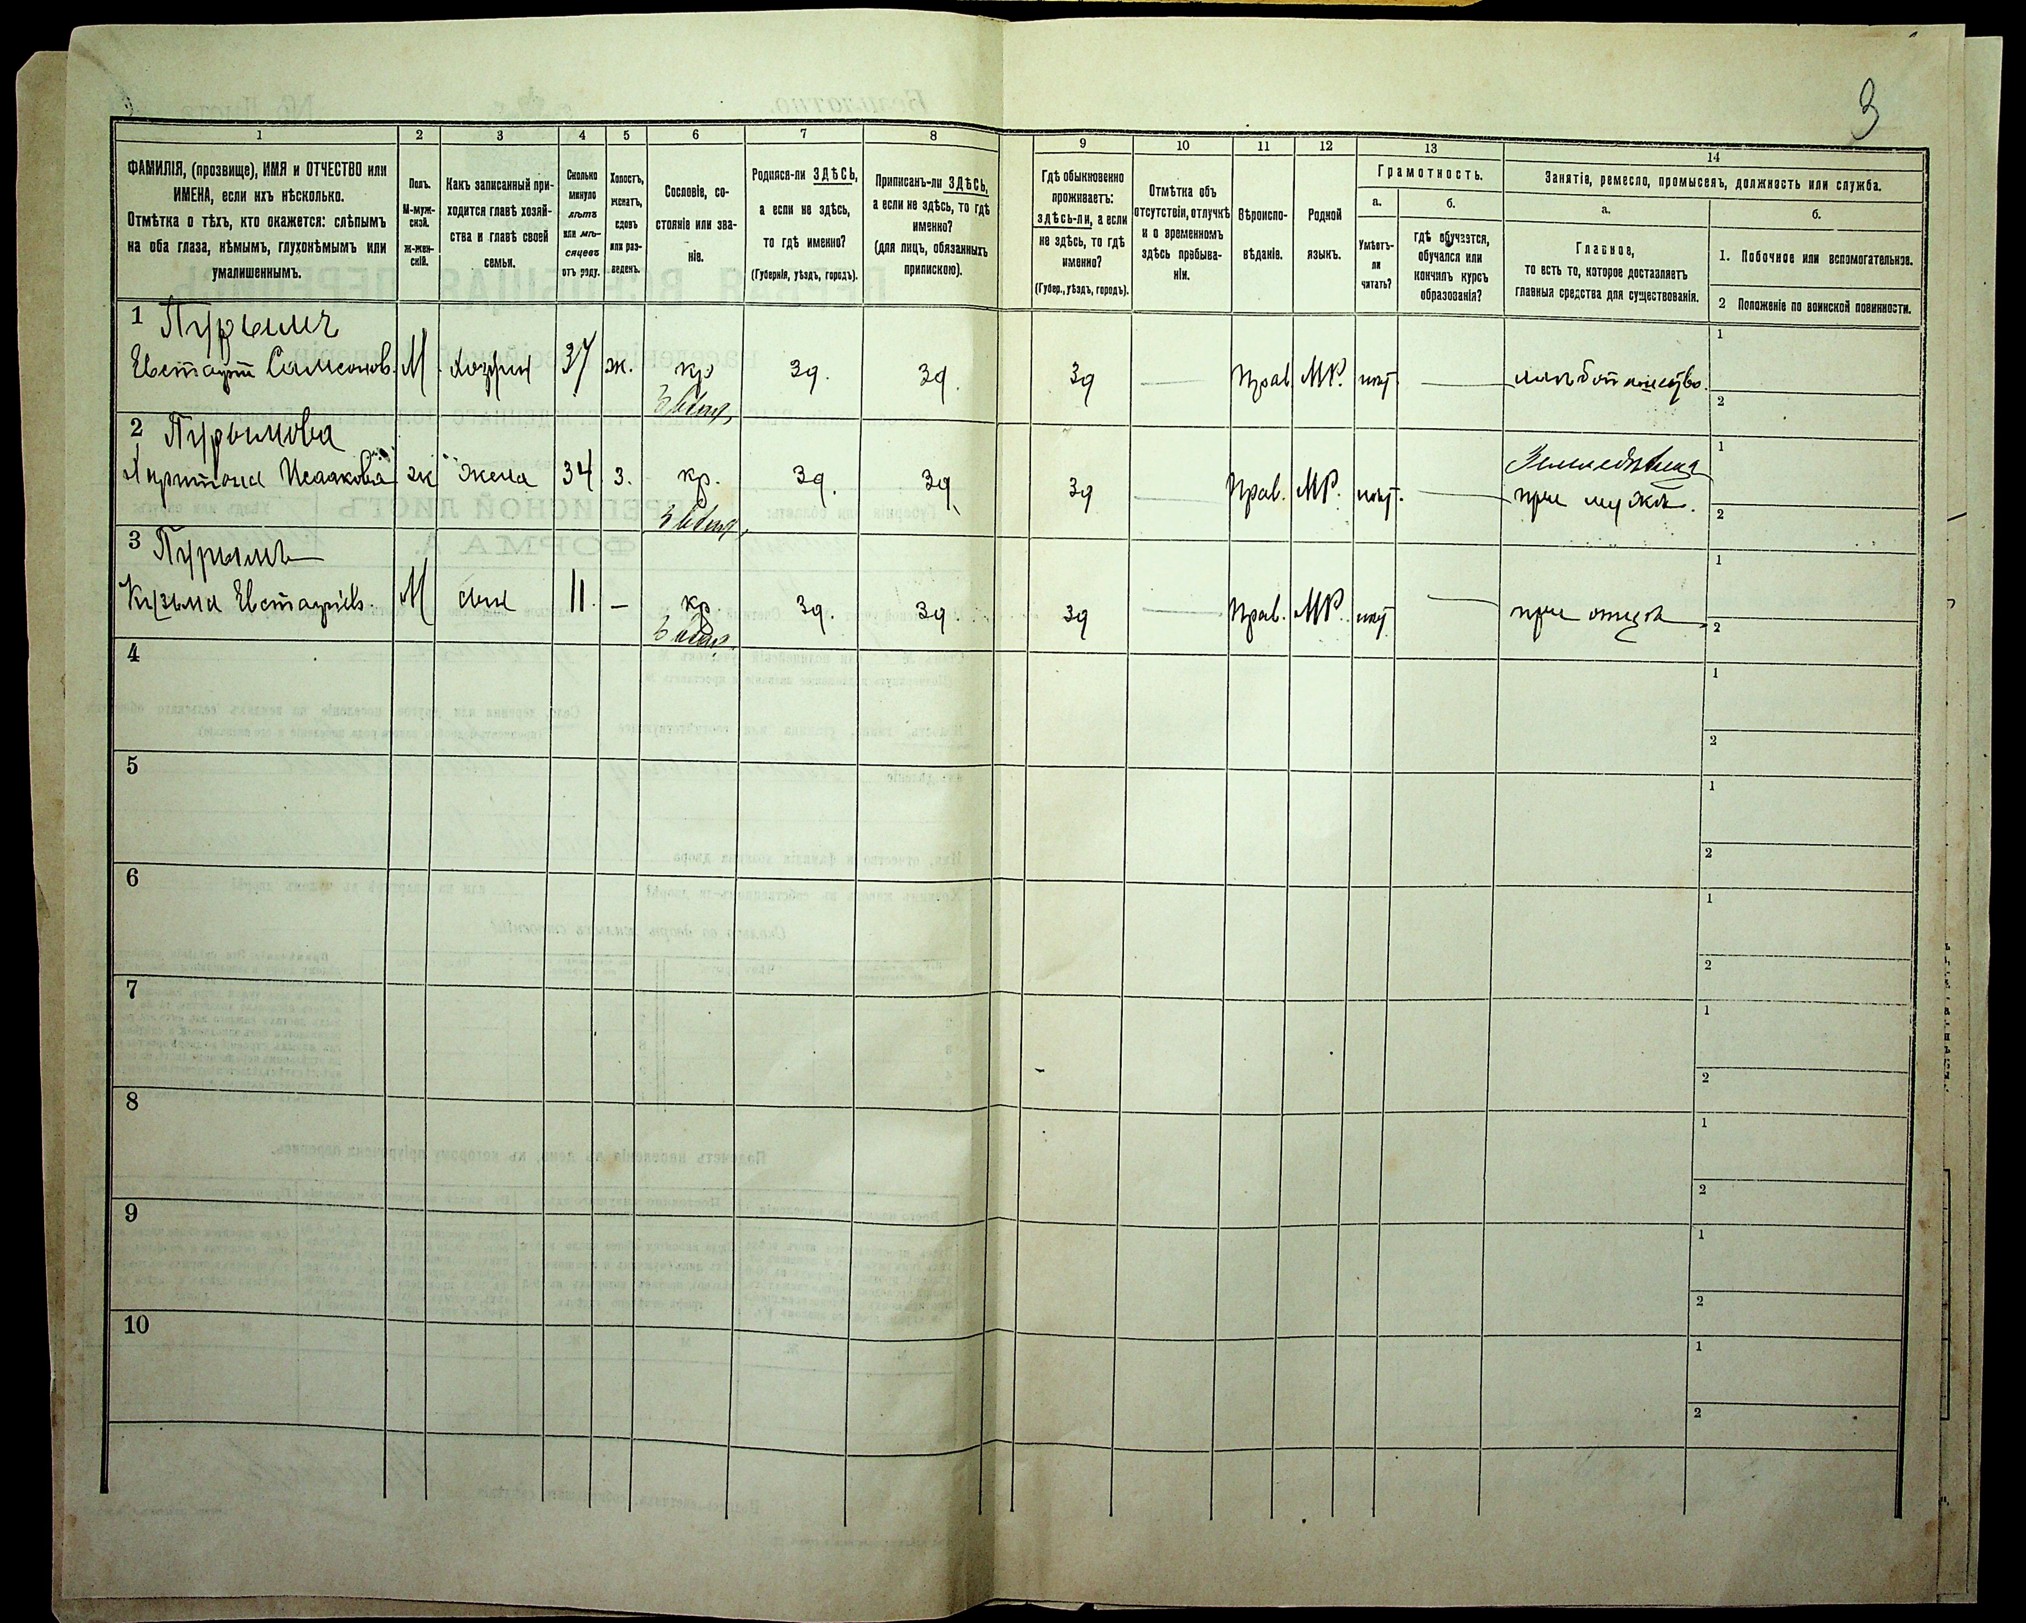 3
1 2 3 4 5 6 7 8 9 10 11 12 13 14
ФАМИЛІЯ, (прозвище), ИМЯ и ОТЧЕСТВО или
ИМЕНА, если ихъ нѣсколько.
Отмѣтка о тѣхъ, кто окажется: слѣпымъ
на оба глаза, нѣмымъ, глухонѣмымъ или
умалишеннымъ.
Полъ.
М-муж-
ской.
ж-жен-
скій.
Какъ записанный при-
ходится главѣ хозяй-
ства и главѣ своей
семьи.
Сколько
минуло
лѣтъ
или мѣ-
сяцевъ
отъ роду.
Холостъ,
женатъ,
вдовъ
или раз-
веденъ.
Сословіе, со-
стояніе или зва-
ніе.
Родился-ли ЗДѢСЬ,
а если не здѣсь,
то гдѣ именно?
(Губернія, уѣздъ, городъ).
Приписанъ-ли ЗДѢСЬ,
а если не здѣсь, то гдѣ
именно?
(для лицъ, обязанныхъ
припискою).
Гдѣ обыкновенно
проживаетъ:
здѣсь-ли, а если
не здѣсь, то гдѣ
именно?
(Губер., уѣздъ, городъ).
Отмѣтка объ
отсутствіи, отлучкѣ
и о временномъ
здѣсь пребыва-
ніи.
Вѣроиспо-
вѣданіе.
Родной
языкъ.
Грамотность.
а.
Умѣетъ-
ли
читать?
б.
гдѣ обучается,
обучался или
кончилъ курсъ
образованія?
Занятіе, ремесло, промыселъ, должность или служба.
а.
Главное,
то есть то, которое доставляетъ
главныя средства для существованія.
б.
1. Побочное или вспомогательное.
2 Положеніе по воинской повинности.
1 Пурымъ
Евстафій Самсонов. М хозяин 37 ж. кр зд. зд. зд Прав МР. нѣт
1
2
2 Пурымова
Исаакова ж жена 34 з. кр. зд. зд зд Прав. МР. нѣт. при мужѣ.
1
2
3 Пурымъ
Кузьма Евстафіев. М сын 11. кр. зд. зд. зд Прав. МР. нѣт при отцѣ
1
2
4
1
2
5
1
2
6
1
2
7
1
2
8
1
2
9
1
2
10
1
2